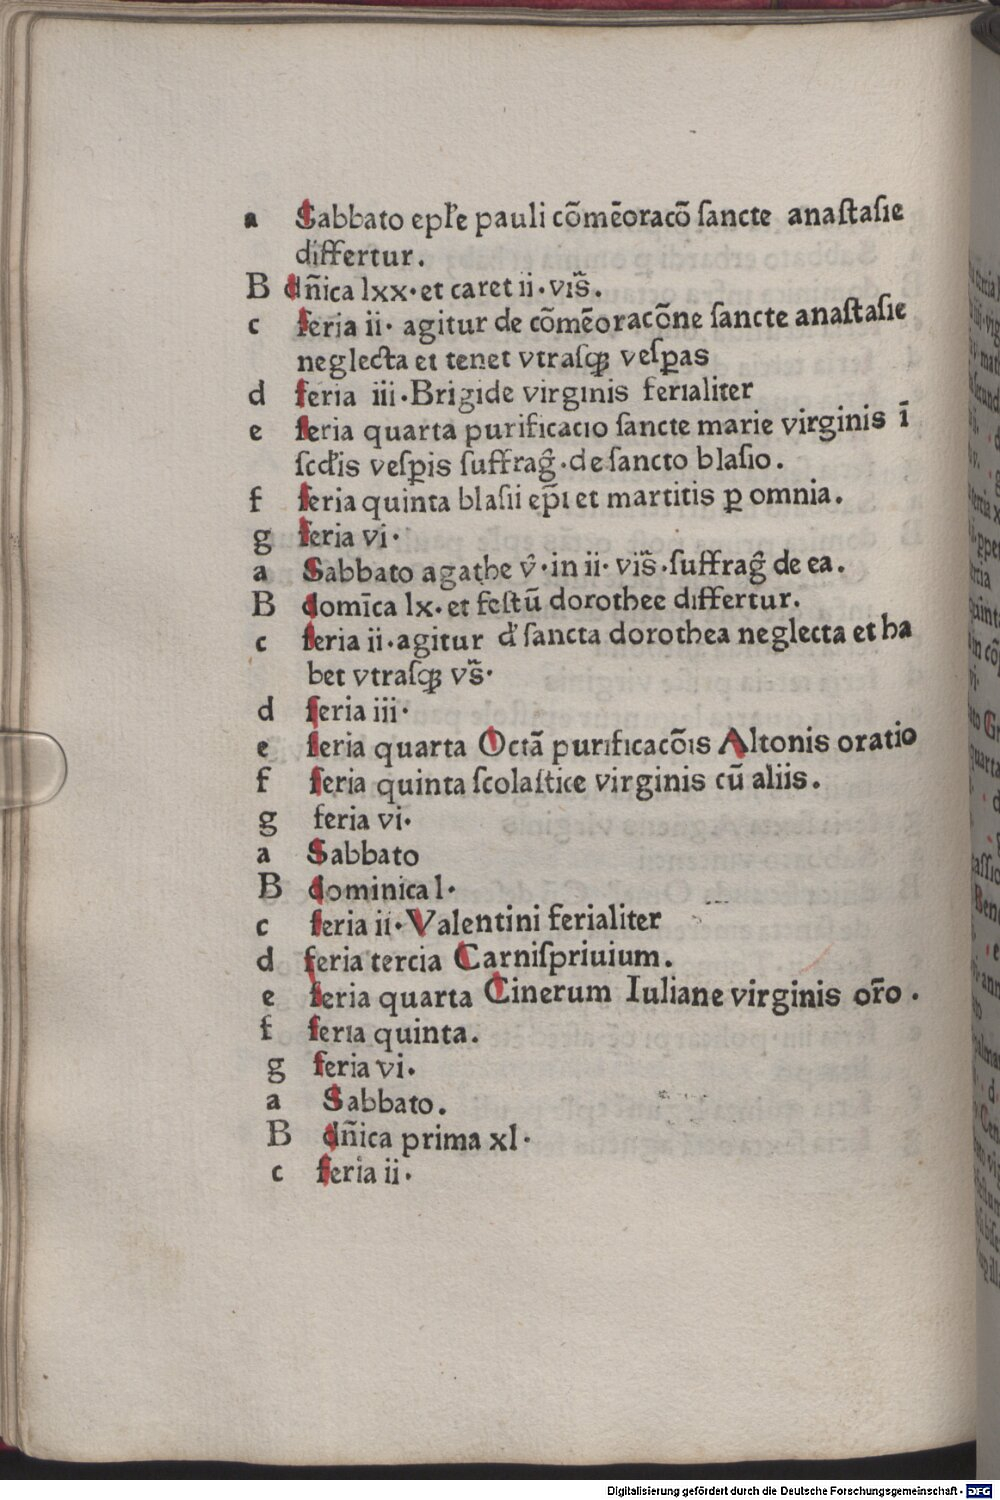 a Sabbato epl̄e pauli cōmēoracō ſancte anaſtaſie
differtur.
B dn̄ica lxx· et caret ii · vis̄.
c feria ii· agitur de cōmēoracōne ſancte anaſtaſie
neglecta et tenet vtraſqꝫ veſꝑas
d feria iii · Brigide virginis ferialiter
e feria quarta purificacio ſancte marie virginis ī
ſcdīs veſꝑis ſuffrag̃ · de ſancto blaſio.
f feria quinta blaſii ep̄i et martitis ꝑ omnia.
g feria vi ·
a Sabbato agathe v̄ · in ii· vis̄ · ſuffrag̃ de ea.
B domīca lx· et feſtū dorothee differtur.
c feria ii · agitur d' ſancta dorothea neglecta et ha
bet vtraſqꝫ vs̄·
d feria iii ·
e feria quarta Octā purificacōis Altonis oratio
f feria quinta ſcolaſtice virginis cū aliis.
g feria vi·
a Sabbato
B dominica l·
c feria ii · Valentini ferialiter
d feria tercia Carniſpriuium.
e feria quarta Cinerum Iuliane virginis or̄o .
f feria quinta.
g feria vi.
a Sabbato.
B dn̄ica prima xl·
c feria ii ·
Digitalisierung gefördert durch die Deutsche Forschungsgemeinschaft - DFG